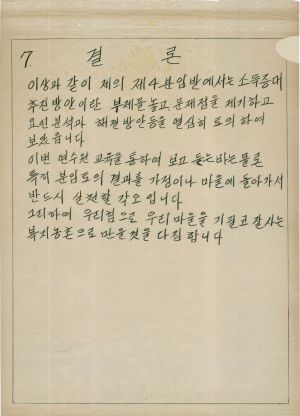 7. 결 론
이상과 같이 제의 제4분임반에서는 소득증대
추진방안이란 부제를 놓고 문제점을 제기하고
요인분석과 해결방안등을 열심히 토의 하여
보았읍니다
이번 연수원 교육을 통하여 보고 듣는바는 물론
특히 분임토의 결과를 가정이나 마을에 돌아가서
반드시 실천할 각오 입니다
그리하여 우리힘으로 우리마을을 기필코 잘사는
복지농촌으로 만들것을 다짐 합니다